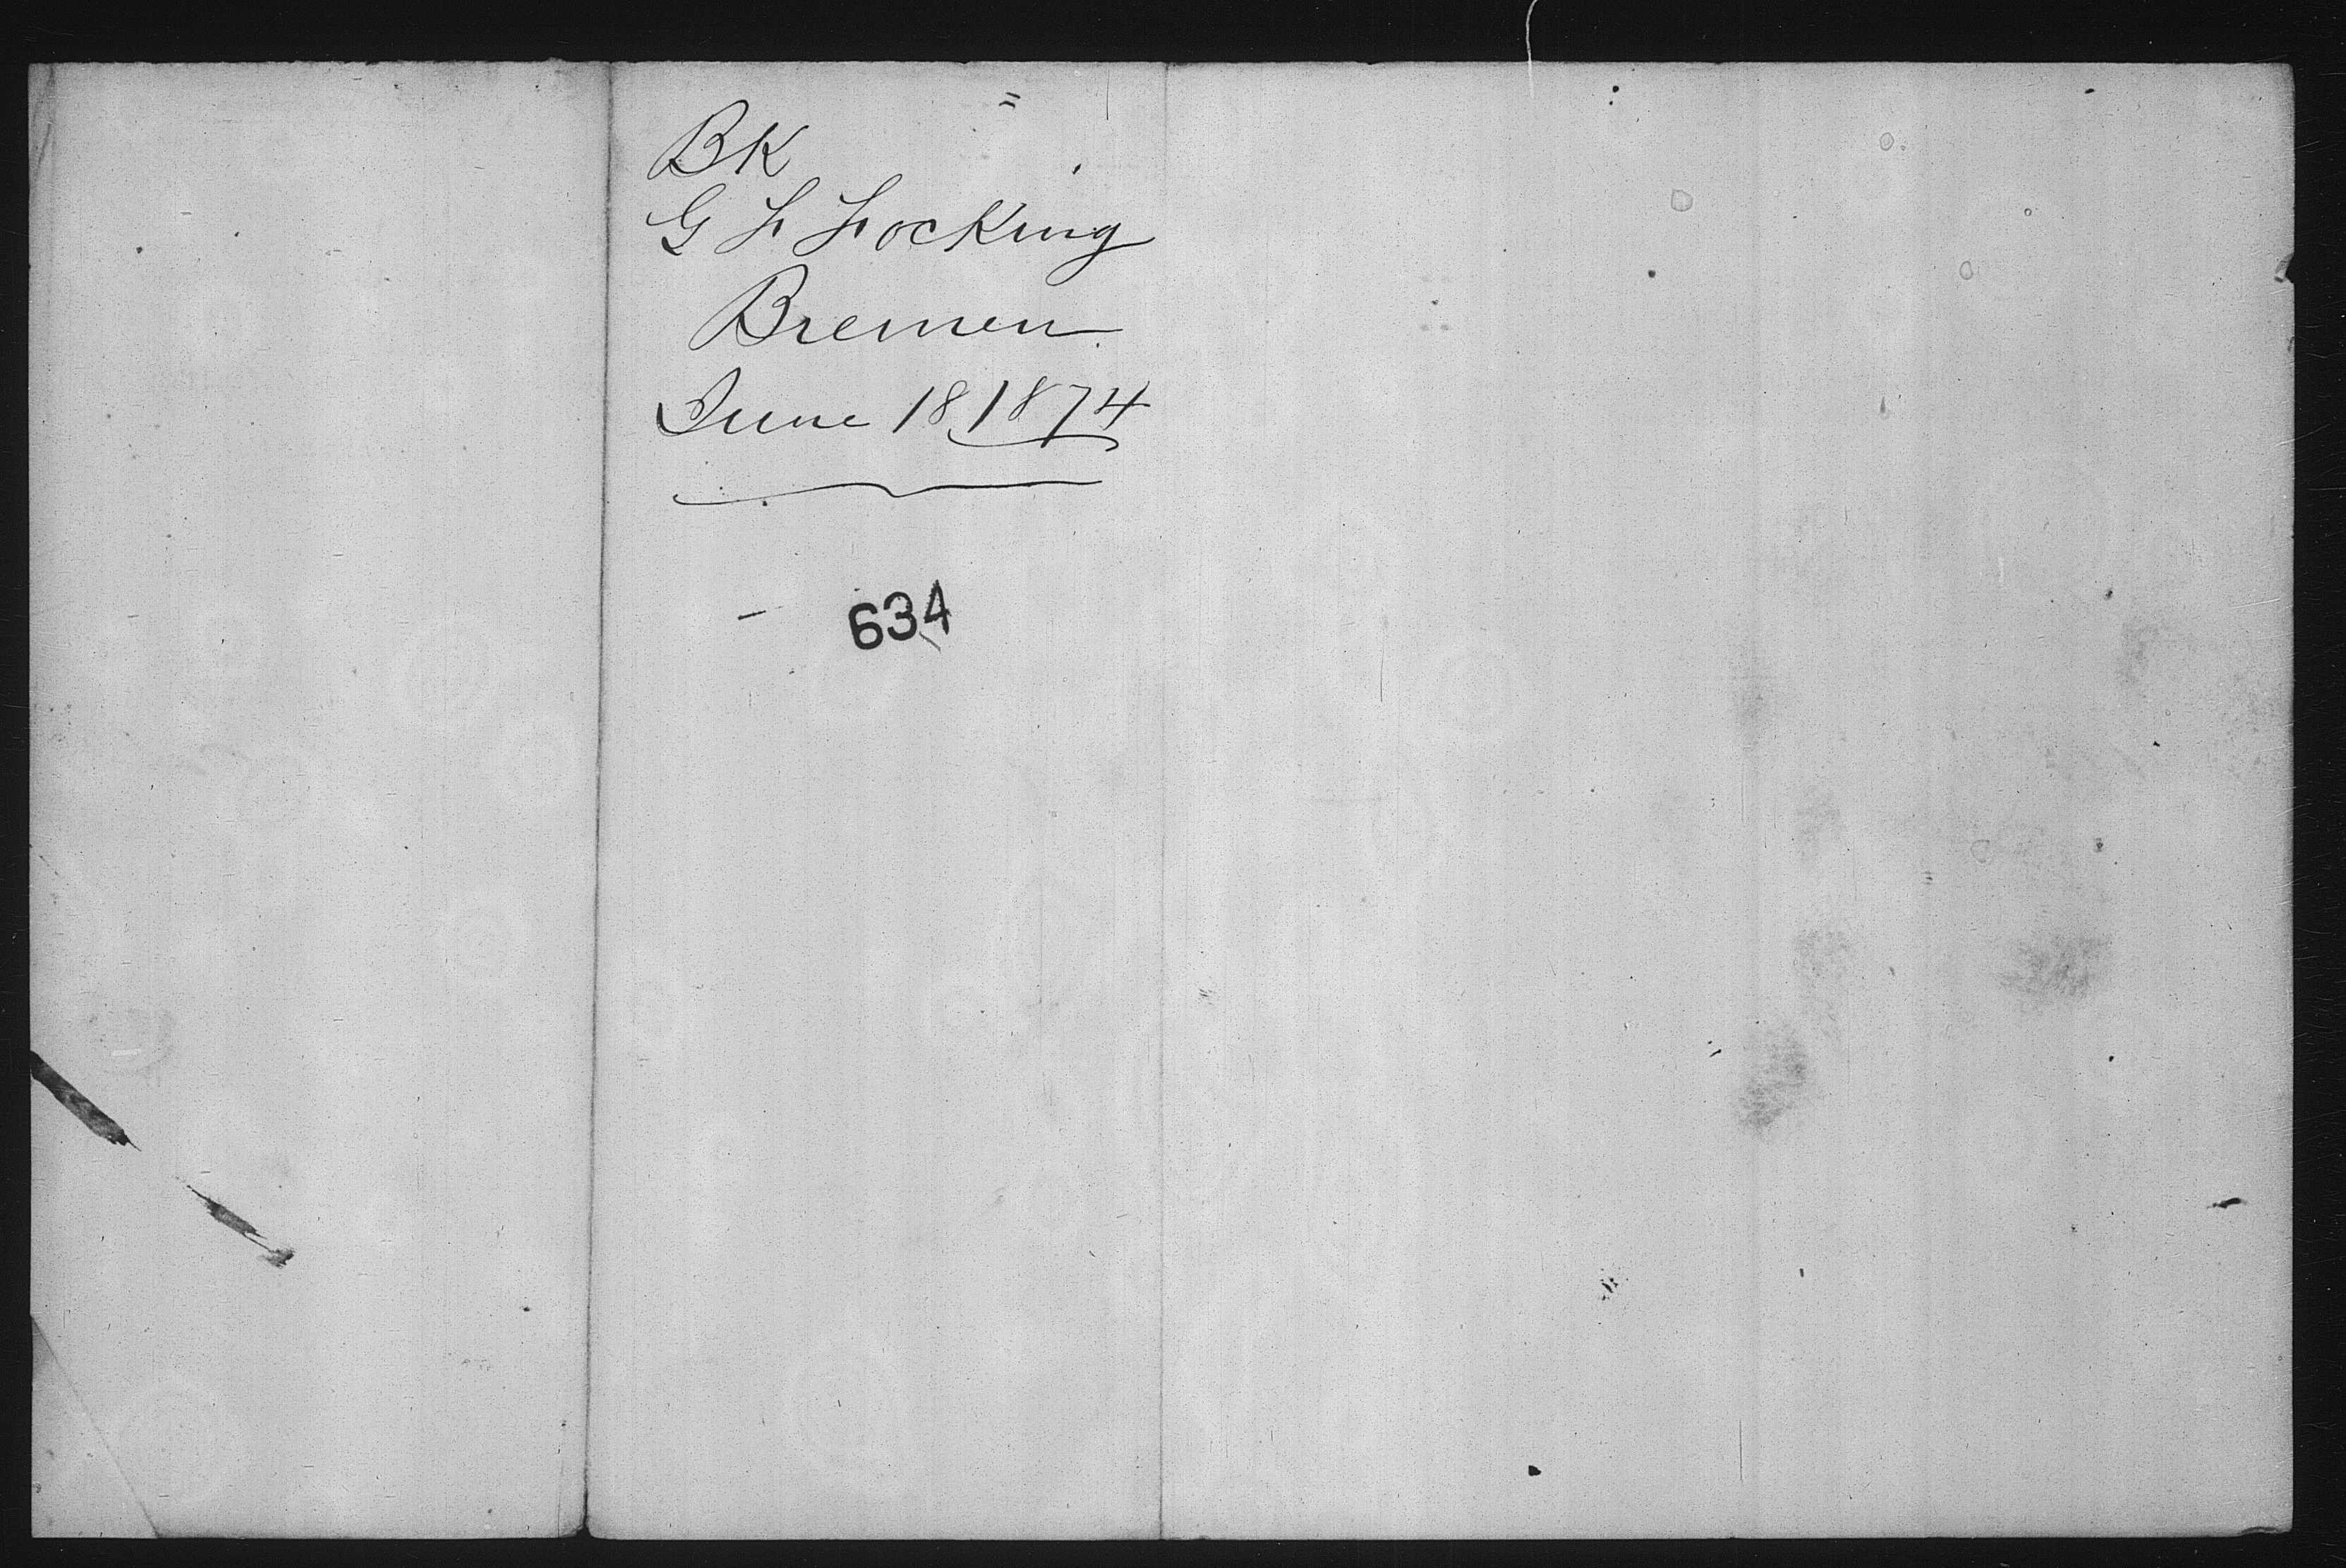 BK
G F Focking
Bremen
June 18 1874
634